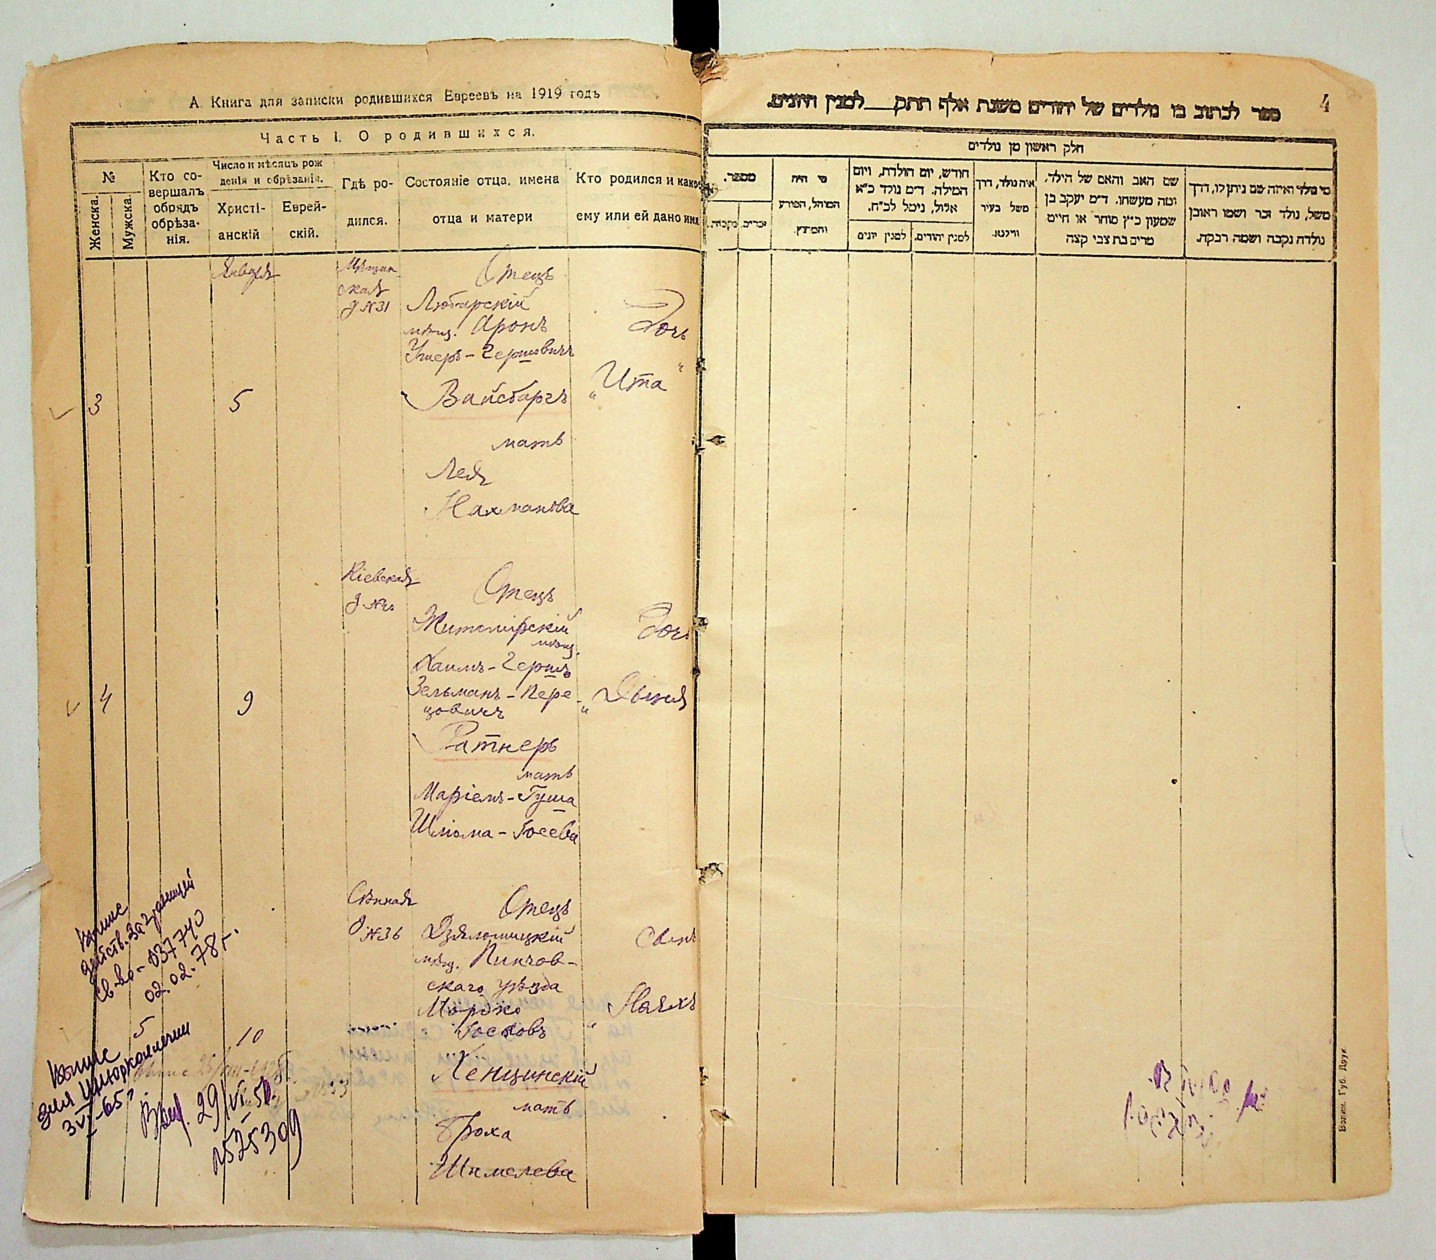 А. Книга для записки родившихся Евреевъ на 1919 годъ
Часть I. О родившихся.
№
Женска.
Мужска.
Кто со-
вершалъ
обрядъ
обрѣза-
нія.
Число и мѣсяцъ рож
денія и обрѣзанія.
Христі-
анскій
Еврей-
скій.
Гдѣ ро-
дился.
Состояніе отца, имена
отца и матери
Кто родился и како
ему или ей дано имя
Января
Мѣщан
ская
д №31
Отецъ
Любарскій
мѣщ. Аронъ
Ушеръ-Гершовичъ
Вайсбергъ
мать
Лея
Нахманова
Дочь
„Ита"
3
5
Кіевская
д №
Отецъ
Житомірскій
мѣщ.
Хаимъ-Гершъ
Зельманъ-Пере-
цовичъ
Ратнеръ
мать
Маріемъ-Гуша
Шліома-Іосева
Дочь
4
9
Сѣнная
д №36
Отецъ
Дзялошицкій
мѣщ. Пинчов-
скаго уѣзда
Мордко
Іосковъ
Ленцинскій
мать
Броха
Шмелева
Сынъ
5
10
Копие
действ. заграницей
Св-во - 037740
02.02.78 г.
Копие
для Инюрколлегии
65
29/VI.50.
525309
4
ספר לכתוב בו נולדים של יהודים משנת אלף תתק__למנין היונים.
חלק ראשון מן נולדים
מספר.
זכרים.
נקבות.
מי היה
המוהל, הפורע
והמוצץ.
חודש, יום הולדת, ויום
המילה. ד״מ נולד כ״א
אלול, נימל לכ״ח.
למנין יונים
למנין יהודים.
איה נולד, דרך
משל בעיר
ווילנא.
שם האב והאם של הילד.
ומה מעשהו. ד״מ יעקב בן
שמעון כ״ץ סוחר או חייט
מרים בת צבי קצה
מי נולד ואיזה שם ניתן לו, דרך
משל, נולד זכר ושמו ראובן
נולדה נקבה ושמה רבקה.
Волин. Губ. Друк.